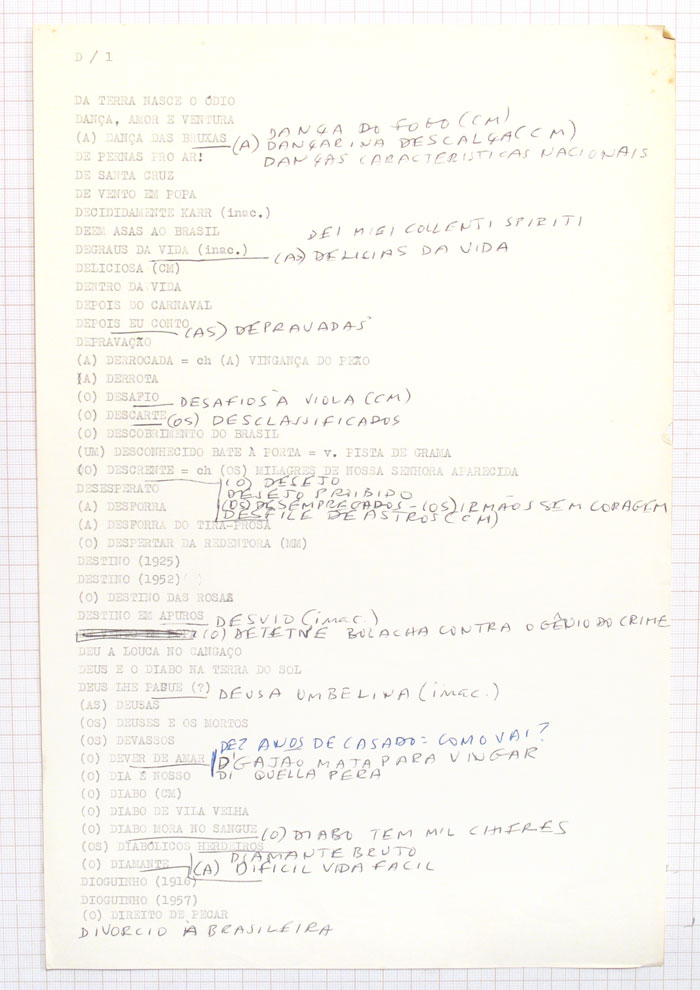 D / 1
DA TERRA NASCE O ÓDIO
DANÇA, AMOR E VENTURA
DANÇA DO FOGO (CM)
(A) DANÇA DAS BRUXAS (A) DANÇARINA DESCALÇA (CM)
DE PERNAS PRO AR! DANÇAS CARACTERISTICAS NACIONAIS
DE SANTA CRUZ
DE VENTO EM POPA
DECIDIDAMENTE KARR (inac.)
DEEM ASAS AO BRASIL DEI MIEI COLLENTI SPIRITI
DEGRAUS DA VIDA (inac.) (AS) DELICIAS DA VIDA
DELICIOSA (CM)
DENTRO DA VIDA
DEPOIS DO CARNAVAL
DEPOIS EU CONTO (AS) DEPRAVADAS
DEPRAVAÇÃO
(A) DERROCADA = ch (A) VINGANÇA DO PEÃO
(A) DERROTA
(O) DESAFIO DESAFIOS À VIOLA (CM)
(O) DESCARTE (OS) DESCLASSIFICADOS
(O) DESCOBRIMENTO DO BRASIL
(UM) DESCONHECIDO BATE À PORTA = v. PISTA DE GRAMA
(O) DESCRENTE = ch (OS) MILAGRES DE NOSSA SENHORA APARECIDA
(O) DESEJO
DESESPERATO DESEJO PROIBIDO
(A) DESFORRA (OS) DESEMPREGADOS - (OS) IRMÃOS SEM CORAGEM
DESFILE DE ASTROS (CM)
(A) DESFORRA DO TIRA-PROSA
(O) DESPERTAR DA REDENTORA (MM)
DESTINO (1925)
DESTINO (1952)
(O) DESTINO DAS ROSAS
DESTINO EM APUROS DESVIO (inac.)
(O) DETETIVE BOLACHA CONTRA O GÊNIO DO CRIME
DEU A LOUCA NO CANGAÇO
DEUS E O DIABO NA TERRA DO SOL
DEUS LHE PAGUE (?) DEUSA UMBELINA (inac.)
(AS) DEUSAS
(OS) DEUSES E OS MORTOS
(OS) DEVASSOS DEZ ANOS DE CASADO = COMO VAI?
(O) DEVER DE AMAR D'GAJÃO MATA PARA VINGAR
(O) DIA É NOSSO DI QUELLA PERA
(O) DIABO (CM)
(O) DIABO DE VILA VELHA
(O) DIABO MORA NO SANGUE (O) DIABO TEM MIL CHIFRES
(OS) DIABÓLICOS HERDEIROS DIAMANTE BRUTO
(O) DIAMANTE (A) DIFICIL VIDA FACIL
DIOGUINHO (1916)
DIOGUINHO (1957)
(O) DIREITO DE PECAR
DIVORCIO À BRASILEIRA